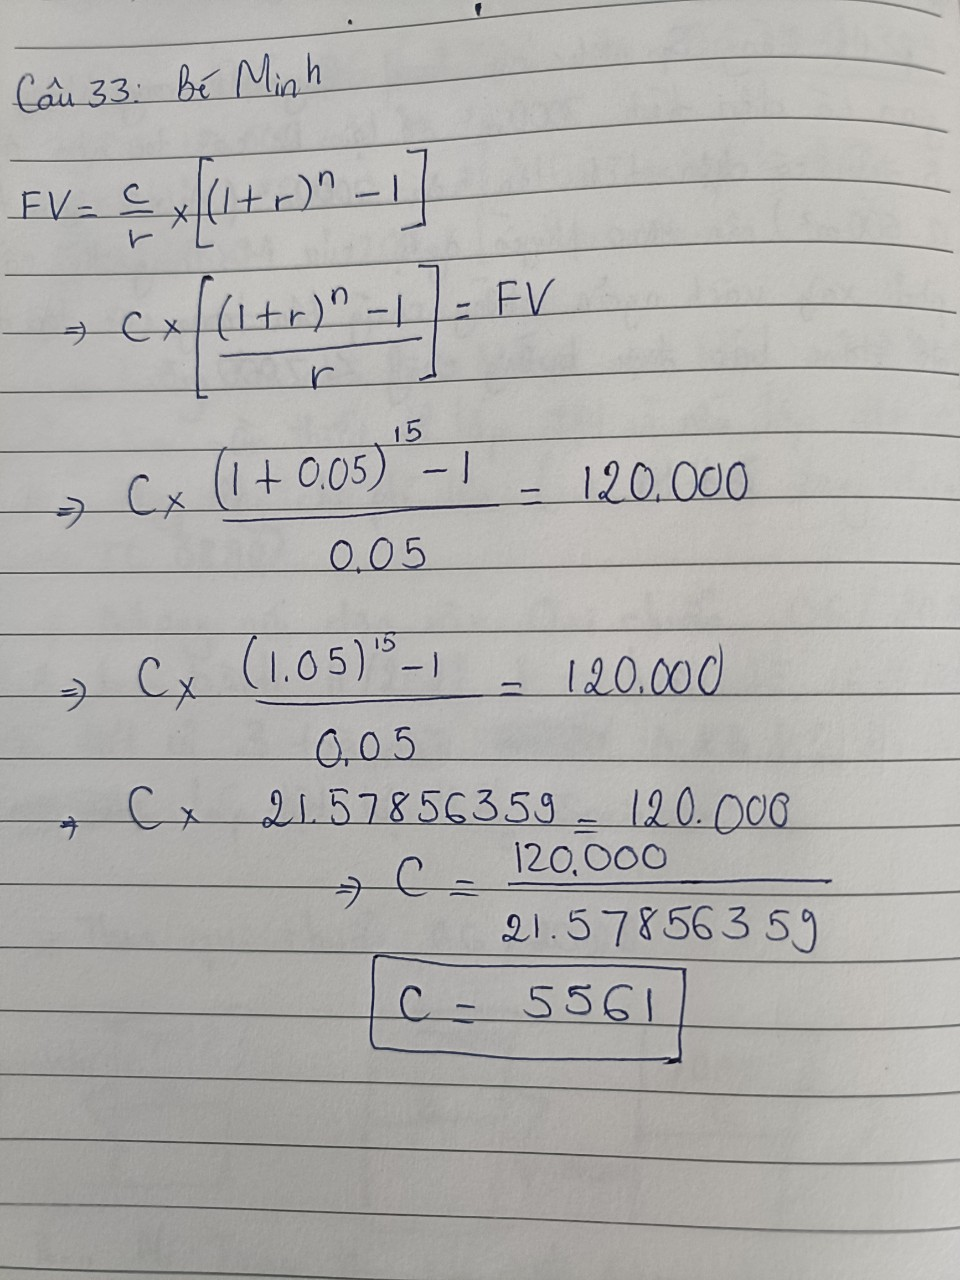 Câu 33: Bé Minh
FV = C/r × [(1+r)^n − 1]
⇒ C × [((1+r)^n − 1)/r] = FV
⇒ C × ((1 + 0.05)^15 − 1)/0.05 = 120.000
⇒ C × ((1.05)^15 − 1)/0.05 = 120.000
⇒ C × 21.57856359 = 120.000
⇒ C = 120.000/21.57856359
C = 5561